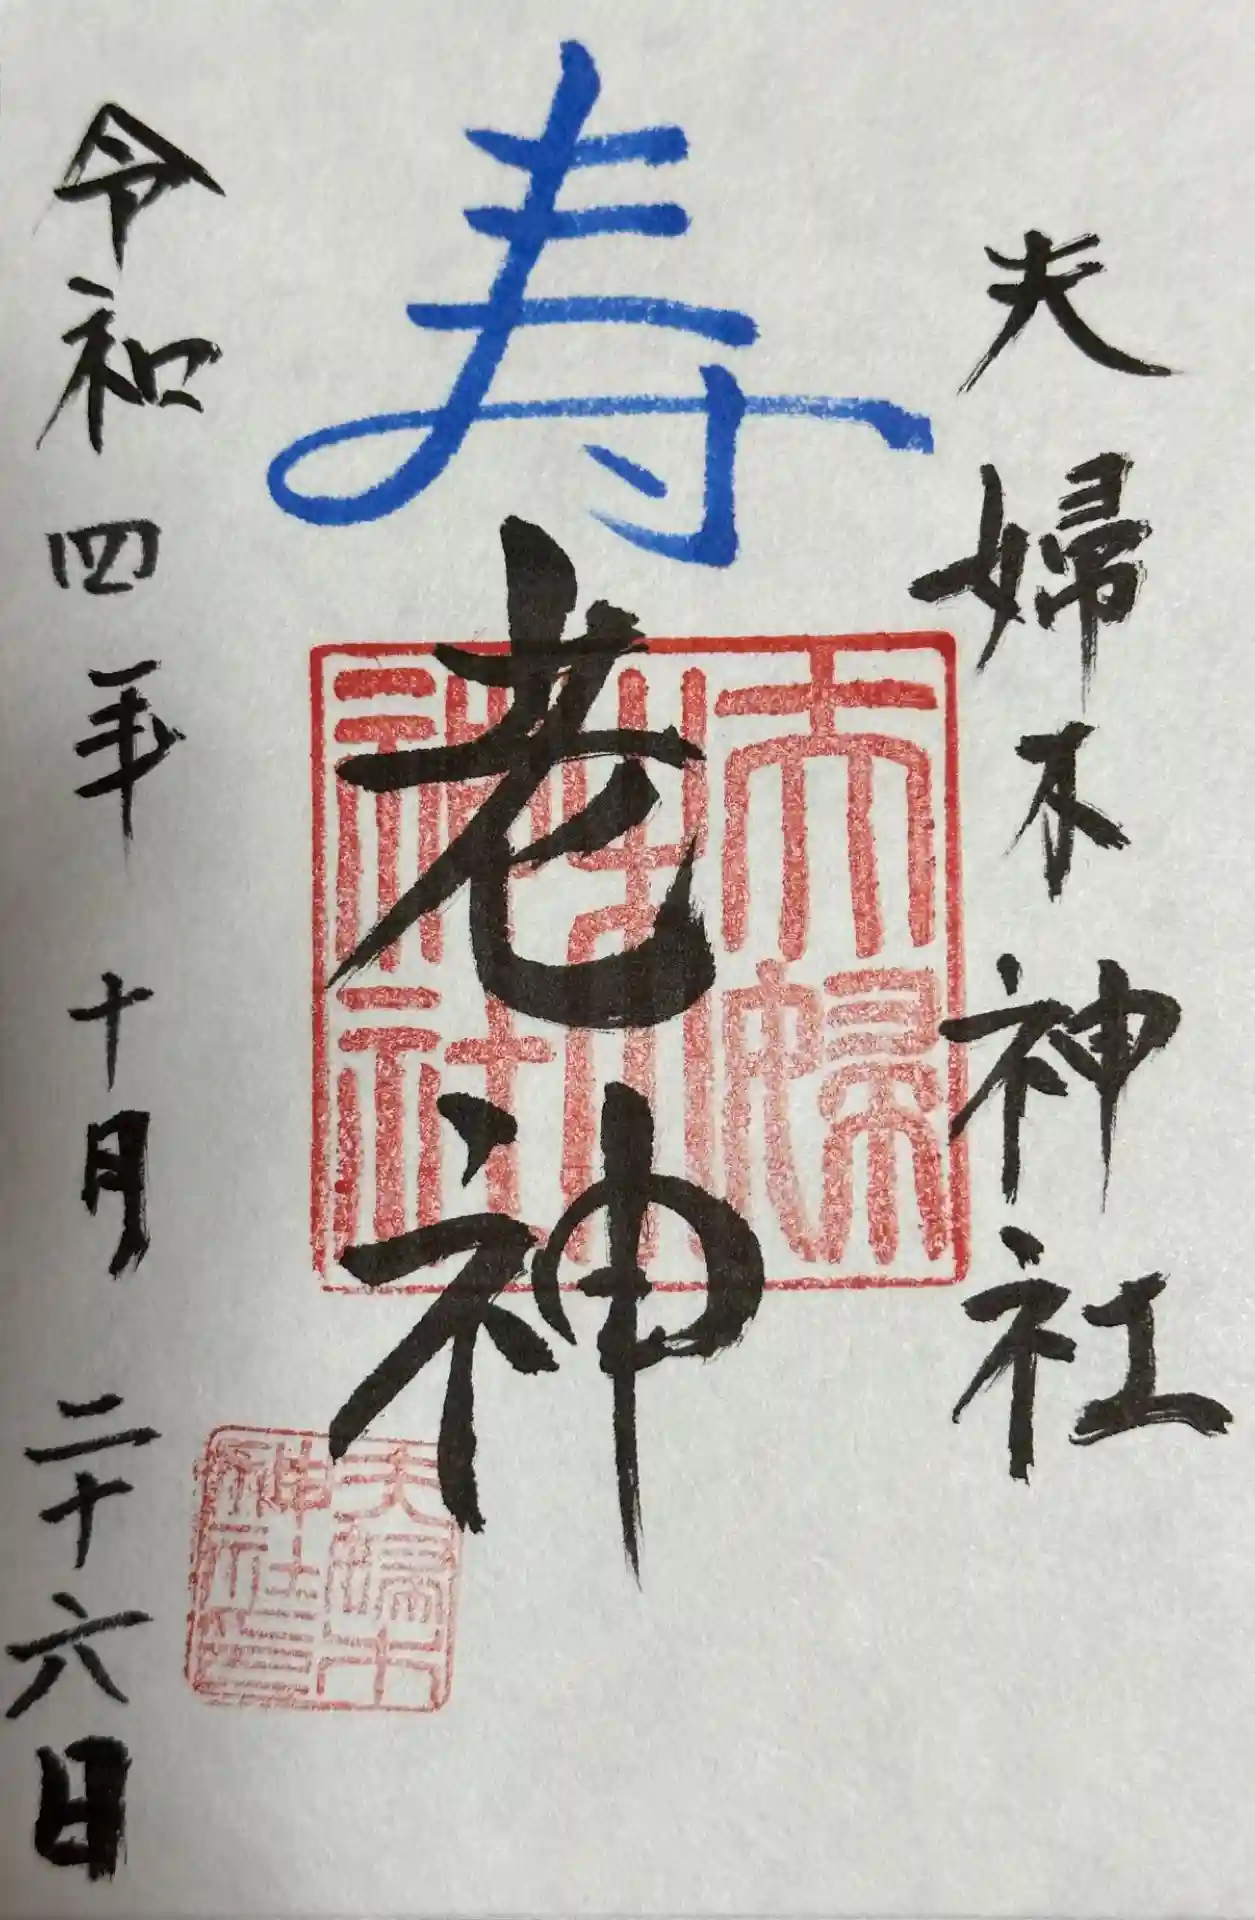 夫婦木神社
寿
老神
令和四年十月二十六日
夫婦木神社